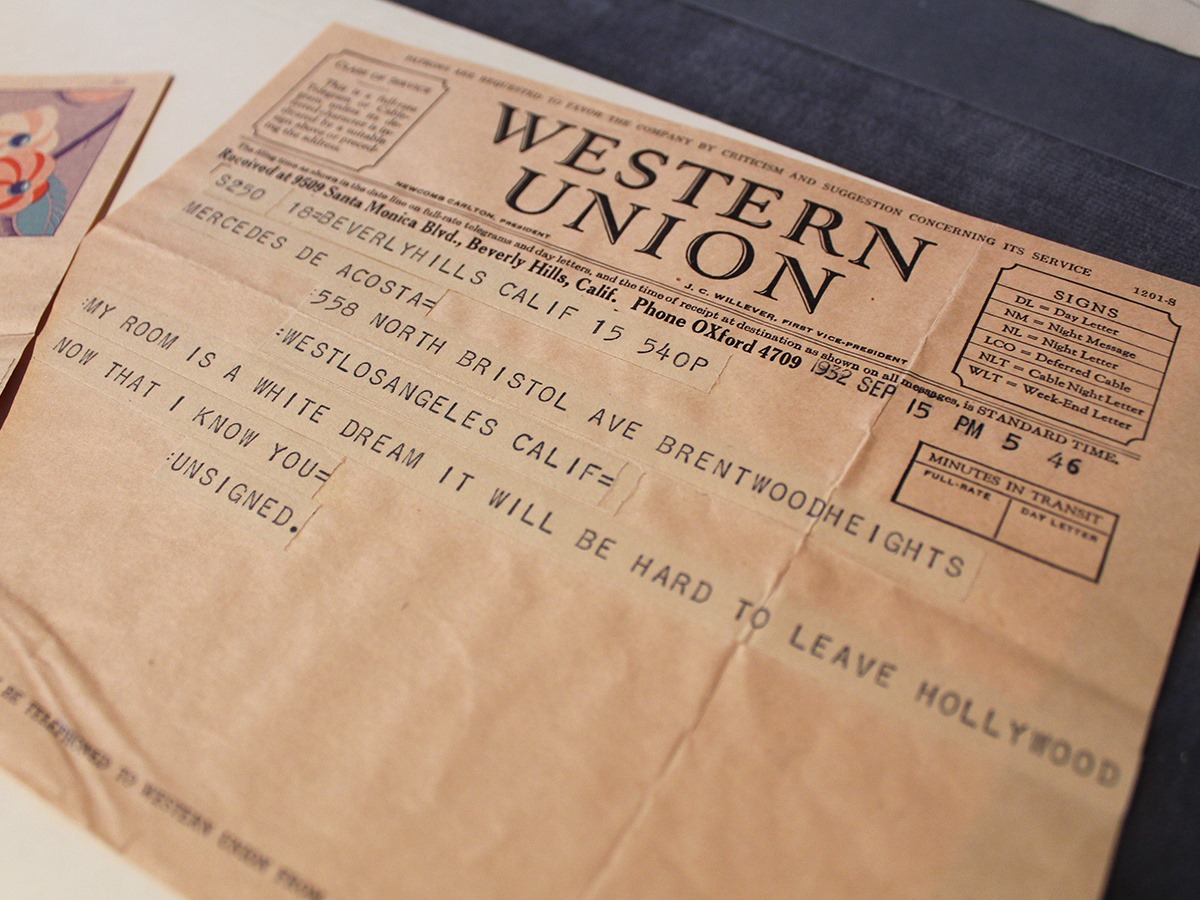 PATRONS ARE REQUESTED TO FAVOR THE COMPANY BY CRITICISM AND SUGGESTION CONCERNING ITS SERVICE
1201-S
CLASS OF SERVICE
This is a full-rate
Telegram or Cable-
gram unless its de-
ferred character is in-
dicated by a suitable
sign above or preced-
ing the address.
WESTERN
UNION
NEWCOMB CARLTON, PRESIDENT
J. C. WILLEVER, FIRST VICE-PRESIDENT
SIGNS
DL = Day Letter
NM = Night Message
NL = Night Letter
LCO = Deferred Cable
NLT = Cable Night Letter
WLT = Week-End Letter
The filing time as shown in the date line on full-rate telegrams and day letters, and the time of receipt at destination as shown on all messages, is STANDARD TIME.
Received at 9509 Santa Monica Blvd., Beverly Hills, Calif. Phone OXford 4709
1932 SEP 15 PM 5 46
S250 18=BEVERLYHILLS CALIF 15 540P
MERCEDES DE ACOSTA=
:558 NORTH BRISTOL AVE BRENTWOODHEIGHTS
:WESTLOSANGELES CALIF=
MINUTES IN TRANSIT
FULL-RATE
DAY LETTER
:MY ROOM IS A WHITE DREAM IT WILL BE HARD TO LEAVE HOLLYWOOD
NOW THAT I KNOW YOU=
:UNSIGNED.
BE TELEPHONED TO WESTERN UNION FROM